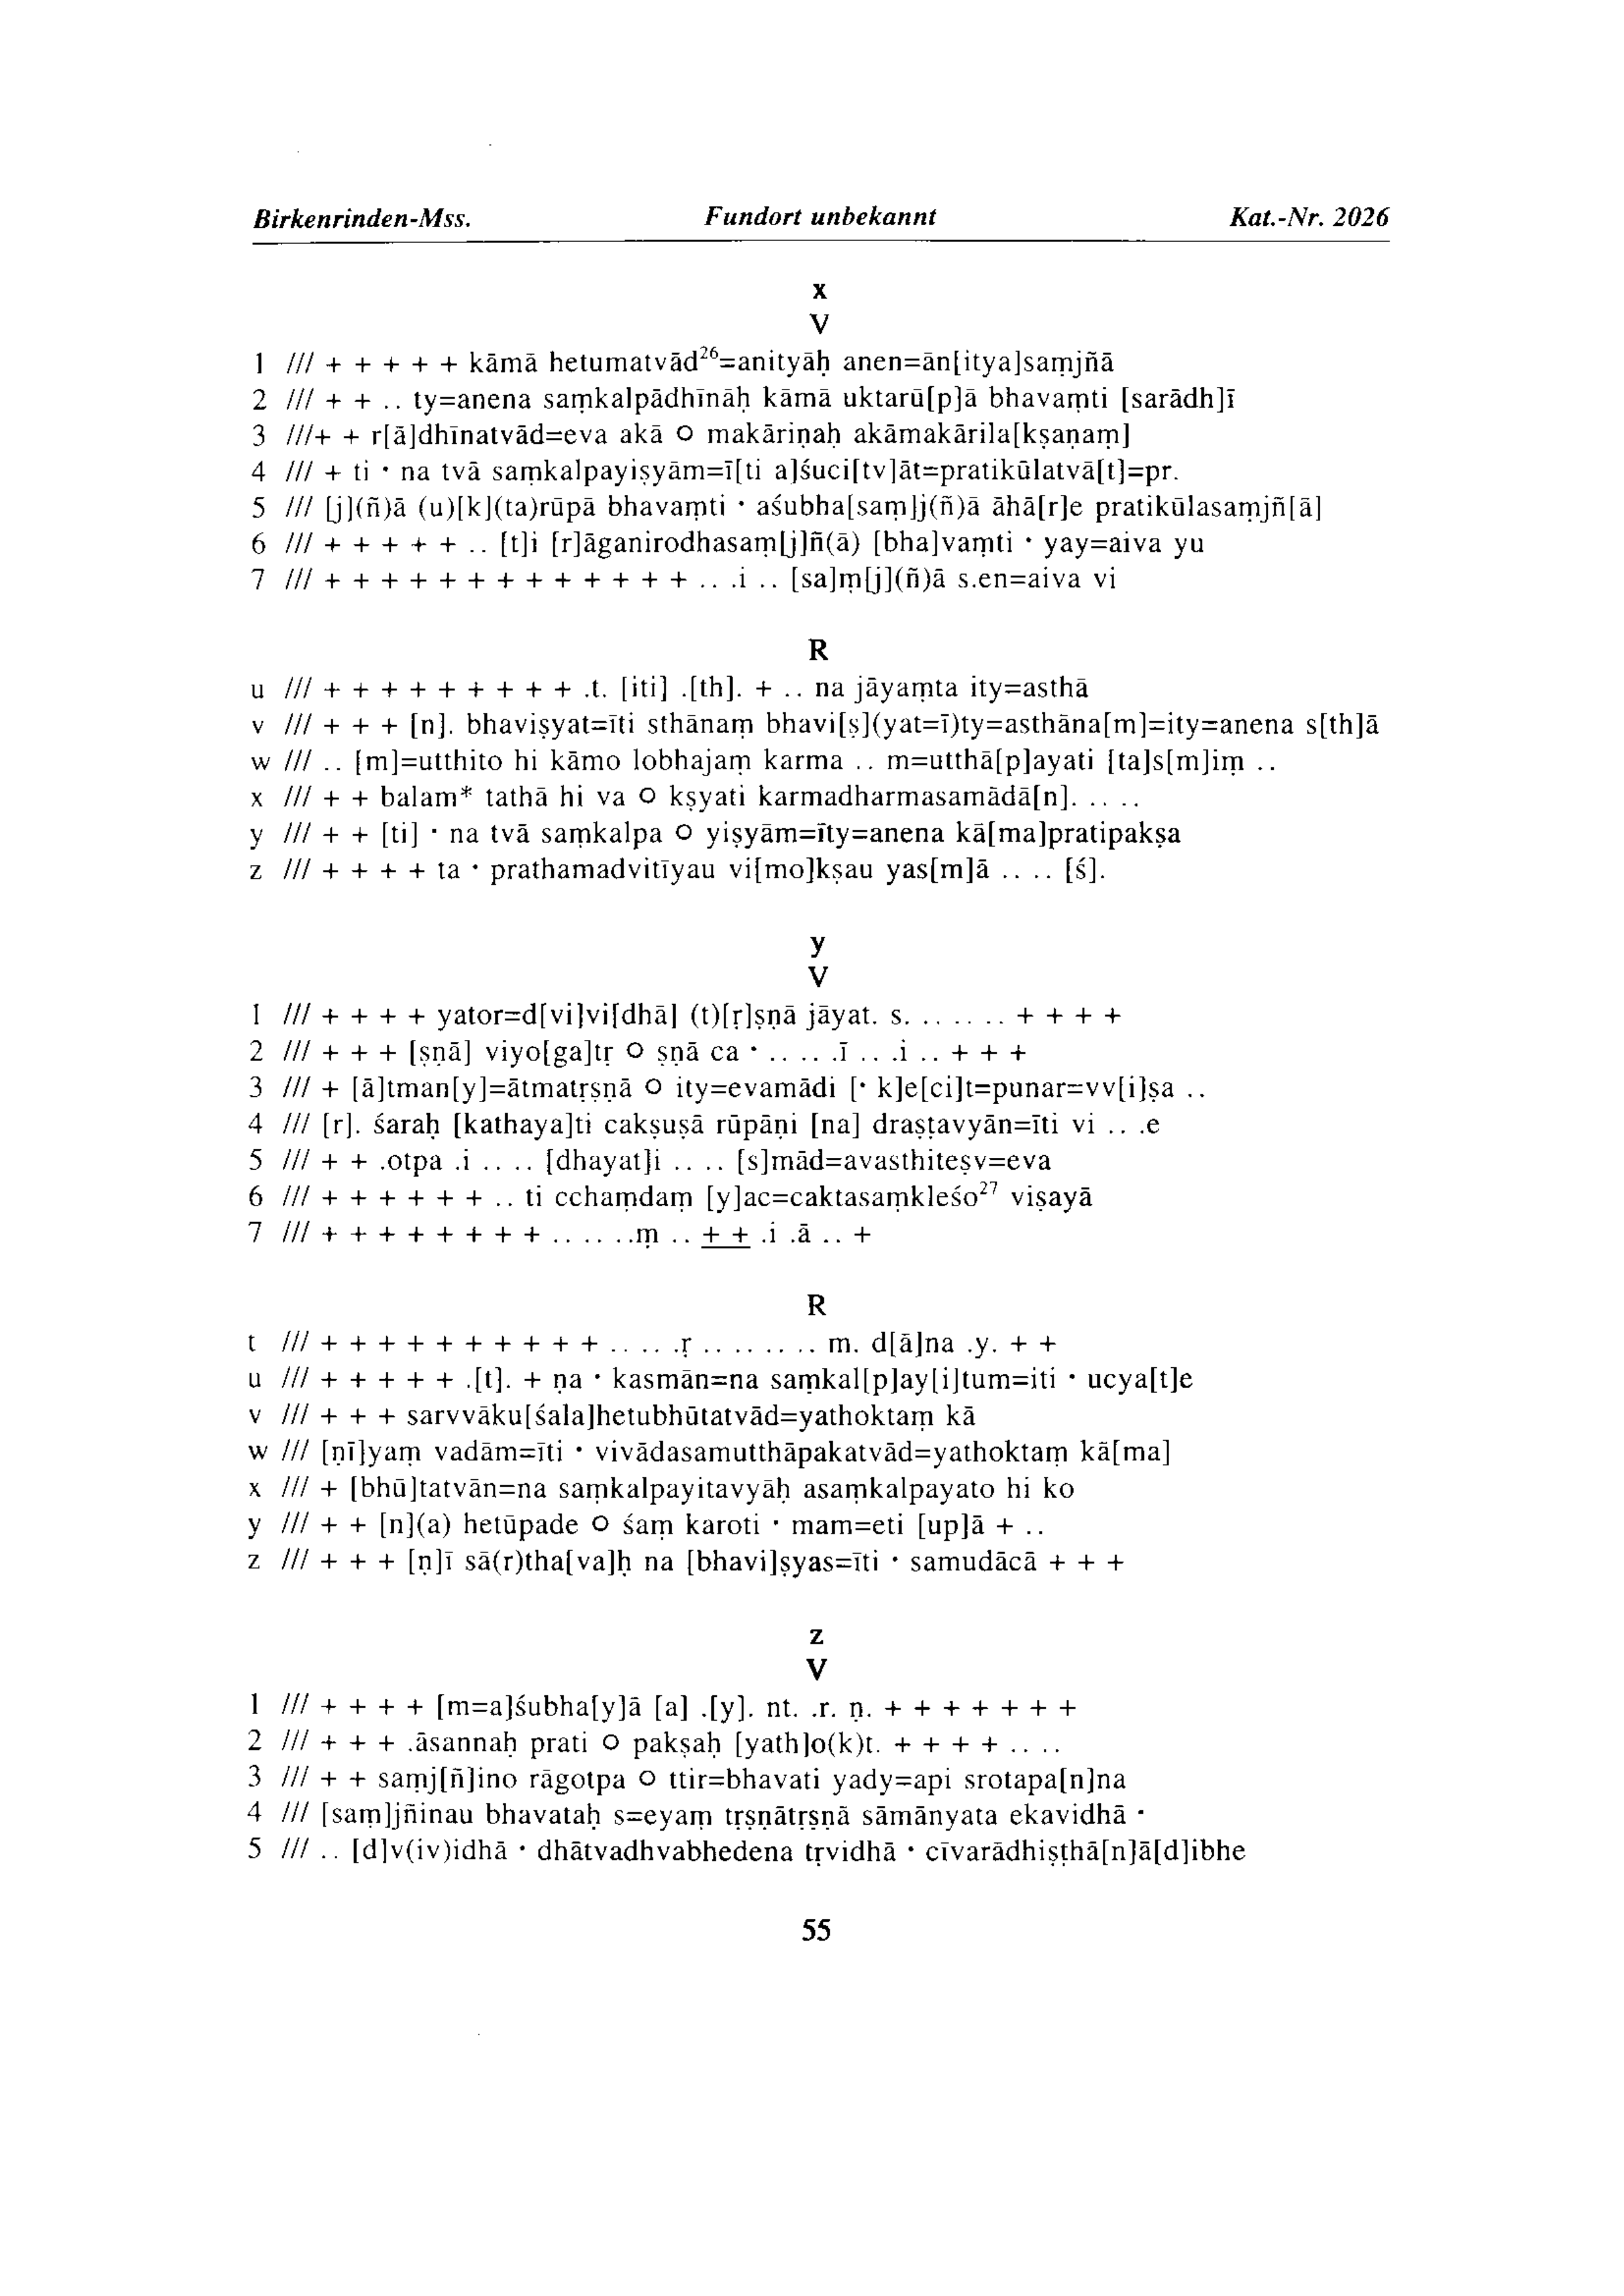 Birkenrinden-Mss. Fundort unbekannt Kat.-Nr. 2026
x
V
1 /// + + + + + kāmā hetumatvād²⁶=anityāḥ anen=ān[itya]saṃjñā
2 /// + + .. ty=anena saṃkalpādhīnāḥ kāmā uktarū[p]ā bhavaṃti [sarādh]ī
3 ///+ + r[ā]dhīnatvād=eva akā O makāriṇaḥ akāmakārila[kṣaṇaṃ]
4 /// + ti · na tvā saṃkalpayiṣyām=ī[ti a]śuci[tv]āt=pratikūlatvā[t]=pr.
5 /// [j](ñ)ā (u)[k](ta)rūpā bhavaṃti · aśubha[saṃ]j(ñ)ā āhā[r]e pratikūlasaṃjñ[ā]
6 /// + + + + + .. [t]i [r]āganirodhasaṃ[j]ñ(ā) [bha]vaṃti · yay=aiva yu
7 /// + + + + + + + + + + + + + .. .i .. [sa]ṃ[j](ñ)ā s.en=aiva vi
R
u /// + + + + + + + + + .t. [iti] .[th]. + .. na jāyaṃta ity=asthā
v /// + + + [n]. bhaviṣyat=īti sthānaṃ bhavi[ṣ](yat=ī)ty=asthāna[m]=ity=anena s[th]ā
w /// .. [m]=utthito hi kāmo lobhajaṃ karma .. m=utthā[p]ayati [ta]s[m]iṃ ..
x /// + + balam* tathā hi va O kṣyati karmadharmasamādā[n]. .. ..
y /// + + [ti] · na tvā saṃkalpa O yiṣyām=īty=anena kā[ma]pratipakṣa
z /// + + + + ta · prathamadvitīyau vi[mo]kṣau yas[m]ā .. .. [ś].
y
V
1 /// + + + + yator=d[vi]vi[dhā] (t)[ṛ]ṣṇā jāyat. s. .. .. .. + + + +
2 /// + + + [ṣṇā] viyo[ga]tṛ O ṣṇā ca · .. .. .ī .. .i .. + + +
3 /// + [ā]tman[y]=ātmatṛṣṇā O ity=evamādi [· k]e[ci]t=punar=vv[i]ṣa ..
4 /// [r]. śaraḥ [kathaya]ti cakṣuṣā rūpāṇi [na] draṣṭavyān=īti vi .. .e
5 /// + + .otpa .i .. .. [dhayat]i .. .. [s]mād=avasthiteṣv=eva
6 /// + + + + + + .. ti cchaṃdaṃ [y]ac=caktasaṃkleśo²⁷ viṣayā
7 /// + + + + + + + + .. .. ..ṃ .. + + .i .ā .. +
R
t /// + + + + + + + + + + .. .. .ṛ .. .. .. .. m. d[ā]na .y. + +
u /// + + + + + .[t]. + ṇa · kasmān=na saṃkal[p]ay[i]tum=iti · ucya[t]e
v /// + + + sarvvāku[śala]hetubhūtatvād=yathoktaṃ kā
w /// [ṇī]yaṃ vadām=īti · vivādasamutthāpakatvād=yathoktaṃ kā[ma]
x /// + [bhū]tatvān=na saṃkalpayitavyāḥ asaṃkalpayato hi ko
y /// + + [n](a) hetūpade O śaṃ karoti · mam=eti [up]ā + ..
z /// + + + [ṇ]ī sā(r)tha[va]ḥ na [bhavi]ṣyas=īti · samudācā + + +
z
V
1 /// + + + + [m=a]śubha[y]ā [a] .[y]. nt. .r. ṇ. + + + + + + +
2 /// + + + .āsannaḥ prati O pakṣaḥ [yath]o(k)t. + + + + .. ..
3 /// + + saṃj[ñ]ino rāgotpa O ttir=bhavati yady=api srotapa[n]na
4 /// [saṃ]jñinau bhavataḥ s=eyaṃ tṛṣṇātṛṣṇā sāmānyata ekavidhā ·
5 /// .. [d]v(iv)idhā · dhātvadhvabhedena tṛvidhā · cīvarādhiṣṭhā[n]ā[d]ibhe
55